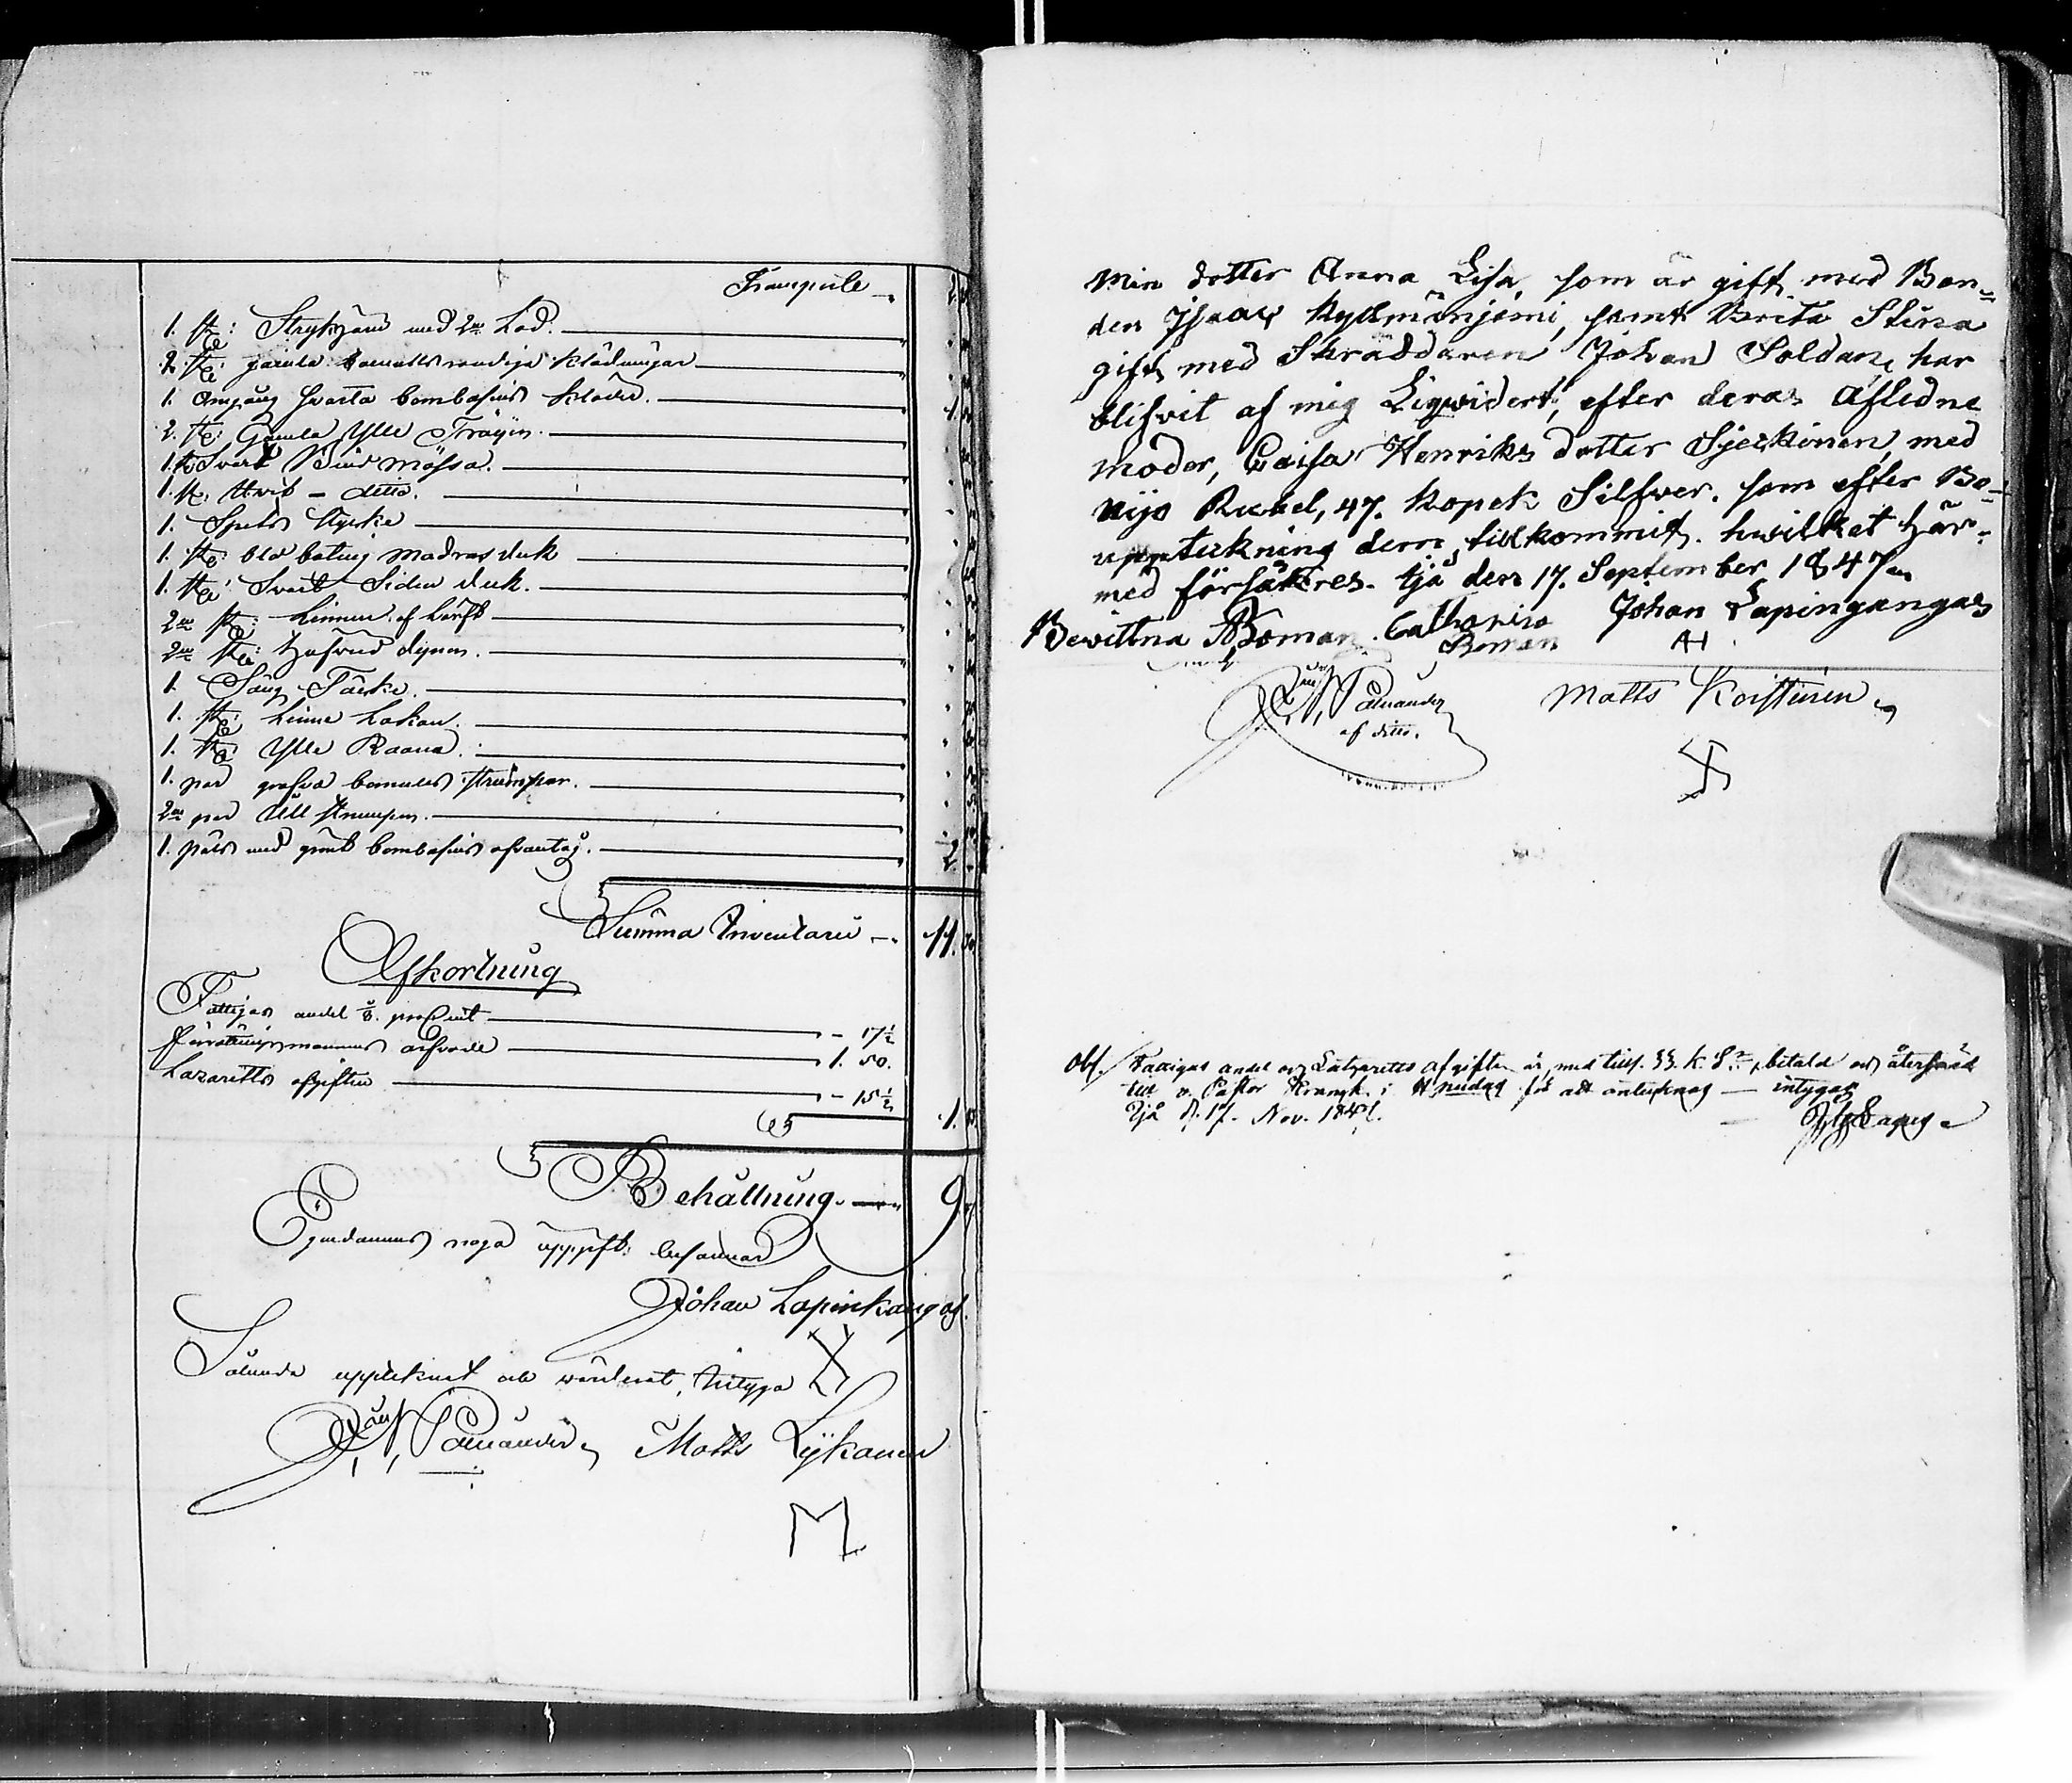 Transport 2
1. st: Strykjern med 2ne Lod.
2 st: gamla bomullsrandiga Klädningar
1. Omgång svarta bombasins Kläder. 1
2. st: Gamla Ylle Tröijor.
1. st Svart Bind mössa.
1. st. Hvit - ditto.
1. Spets Stycke
1. st: blå botnig madras duk
1. st: Svart Siden duk.
2ne st: Linnen af Lärft
2ne st: Hufvud dynor.
1. Säng Täcke.
1. st: Linne Lakan.
1. st: Ylle Raana.
1. par grofva bomulls strumpor.
2ne par Ull strumpor.
1. päls med grönt bombasins öfvantyg. 2
Summa Inventarii 11.
Afkortning
Fattigas andel ⅛. procent - 17½
Förrättningsmannens arfvode 1. 50.
Lazaretts afgiften - 15½
1.
Behållning. 9
Egendomens noga uppgift: besannar
Johan Lapinkangas.
Sålunda upptecknat och värderat, intyga
Palmander Matts Lyykanen
M
Min dotter Anna Lisa, som är gift med Bon-
den Isaac Kyllmänjemi, samt Brita Stina
gift med Skräddaren Johan Soldan, har
blifvit af mig Liqvidert, efter deras Afledne
moder, Caisa Henriks dotter Sjeckinen, med
Nijo Rubel, 47. Kopek Silfver. som efter Bo-
upptekning dem tillkommit. hwilket här-
med försäkres. Ijå den 17. September 1847.
Bewittna Boman. Catharina Johan Lapingangas
Boman AH
Palmander Matts Koistinen
af ditto.
Obs. Fattigas andel och Latzaretts afgiften är, med tills. §§. K. S., betald och återsänd
till v. Pastor i för att antecknas — intygar
Ijå d. 17. Nov. 1847.